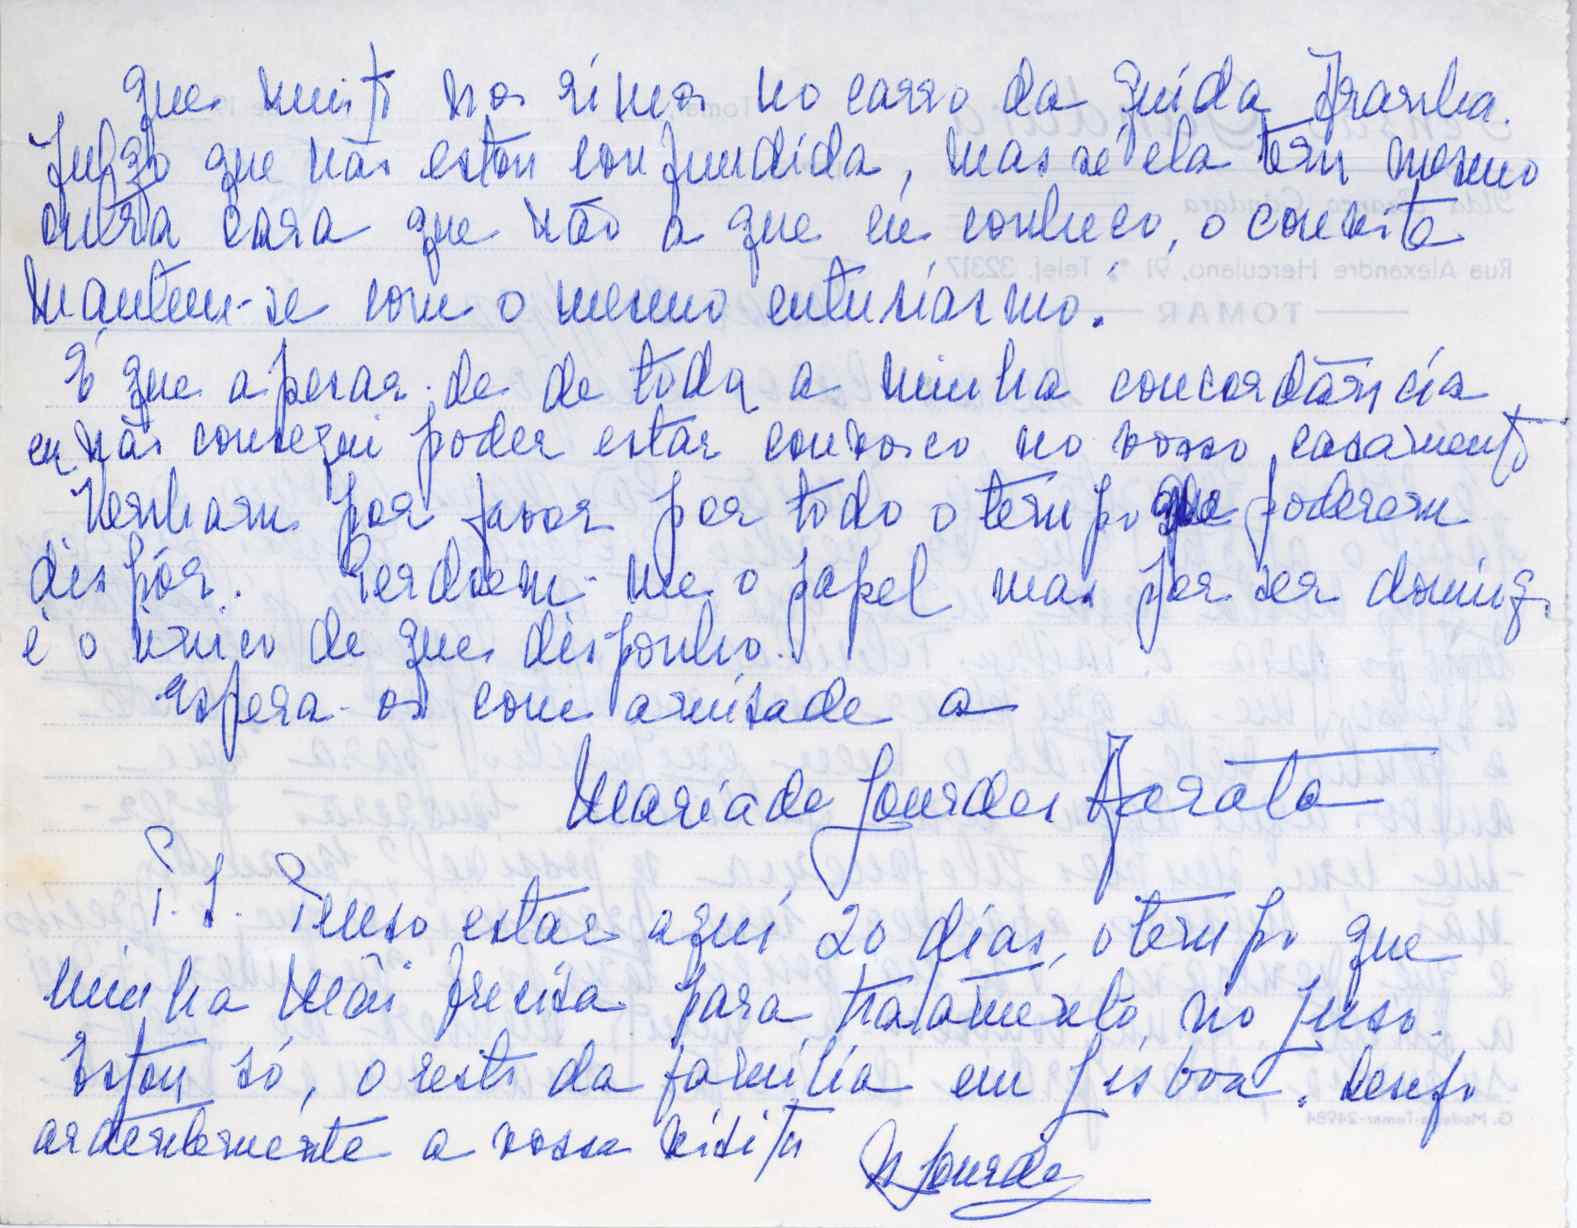 que muito nos rimos no carro da Guida Aranha.
Julgo que não estou confundida, mas se ela tem mesmo
outra cara que não a que eu conheço, o convite
mantem-se com o mesmo entusiasmo.
É que apesar de de toda a minha concordância
eu não consegui poder estar convosco no vosso casamento
Venham por favor por todo o tempo que poderem
dispôr. Perdoem-me o papel mas por ser doming.
é o único de que disponho.
Espera-os com amisade a
Maria de Lourdes
P.S. Penso estar aqui 20 dias, o tempo que
minha Mãi precisa para tratamento no Luso.
Estou só, o resto da família em Lisboa. Desejo
ardentemente a vossa visita
M Lourdes
Rua Alexandre Herculano, 91 * Telef. 32317
TOMAR